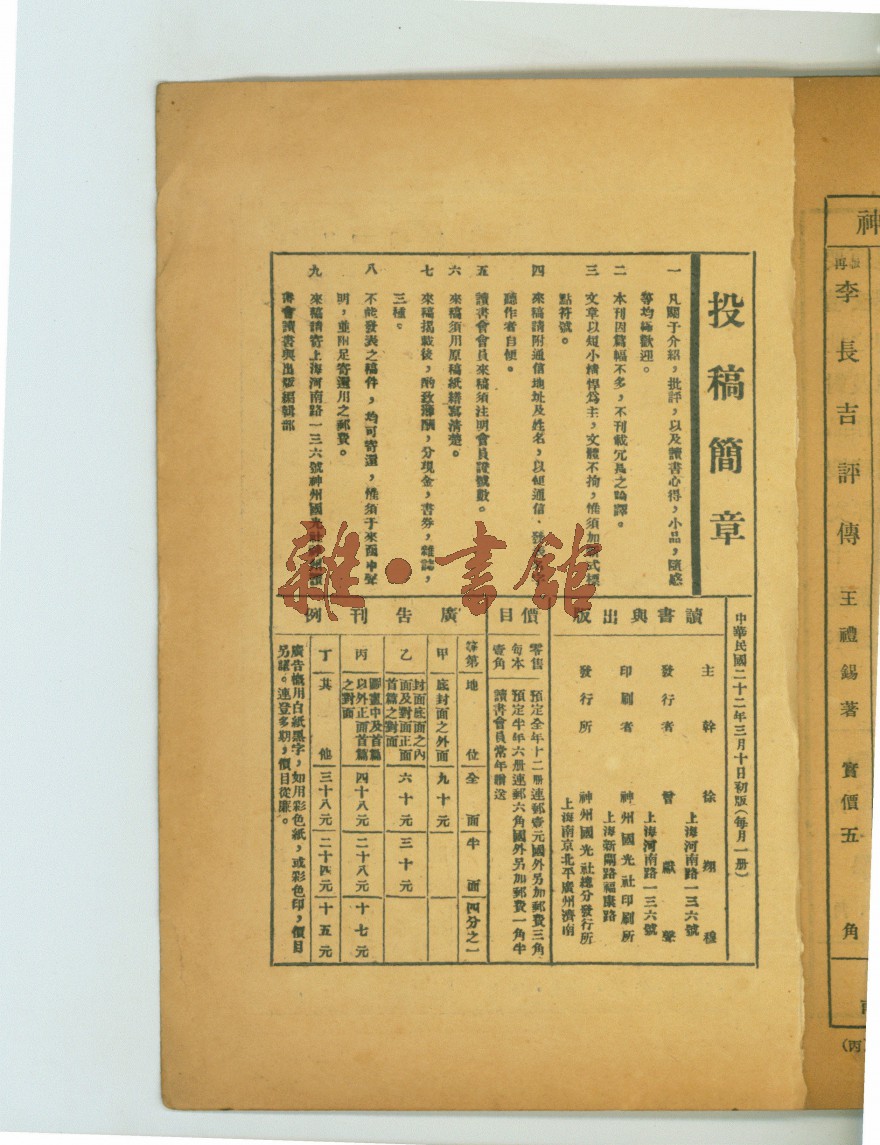 投稿簡章
一　凡關于介紹，批評，以及讀書心得，小品，隨感
等均極歡迎。
二　本刊因篇幅不多，不刊載冗長之論譯。
三　文章以短小精悍爲主，文體不拘，惟須加新式標
點符號。
四　來稿請附通信地址及姓名，以便通信，發表名字
聽作者自便。
五　讀書會會員來稿須注明會員證號數。
六　來稿須用原稿紙繕寫清楚。
七　來稿揭載後，酌致薄酬，分現金，書券，雜誌，
三種。
八　不能發表之稿件，均可寄還，惟須于來函中聲
明，並附足寄還用之郵費。
九　來稿請寄上海河南路一三六號神州國光社神州讀
書會讀書與出版編輯部
中華民國二十二年三月十日初版（每月一册）
讀書與出版
主幹　徐翔穆
上海河南路一三六號
發行者　曾獻聲
上海河南路一三六號
印刷者　神州國光社印刷所
上海新閘路福康路
發行所　神州國光社總分發行所
上海南京北平廣州濟南
價目
零售每本壹角
預定全年十二册連郵壹元國外另加郵費三角
預定半年六册連郵六角國外另加郵費一角半
讀書會員常年贈送
廣告刊例
等第　地位　全面　半面　四分之一
甲　底封面之外面　九十元
乙　封面底面之內面及對面正面首篇之對面　六十元　三十元
丙　圖畫中及首篇以外正面首篇之對面　四十八元　二十八元　十七元
丁　其他　三十八元　二十四元　十五元
廣告概用白紙黑字，如用彩色紙，或彩色印，價目
另議。連登多期，價目從廉。
雜·書館
神
再
李長吉評傳　王禮錫著　實價五角
（丙）